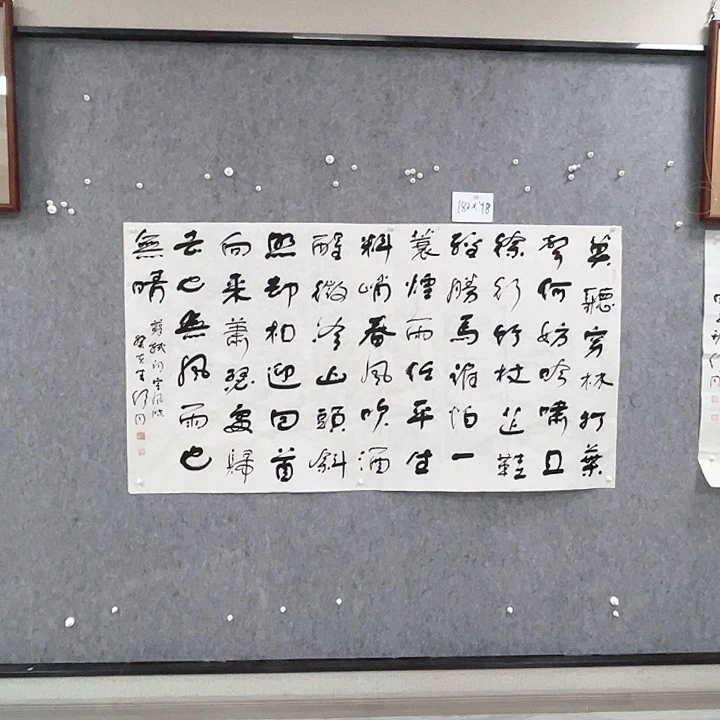 莫聽穿林打葉
聲何妨吟嘯且
徐行竹杖芒鞋
輕勝馬誰怕一
蓑煙雨任平生
料峭春風吹酒
醒微冷山頭斜
照却相迎回首
向來蕭瑟處歸
去也無風雨也
無晴
蘇軾詞定風波
癸亥 舒同